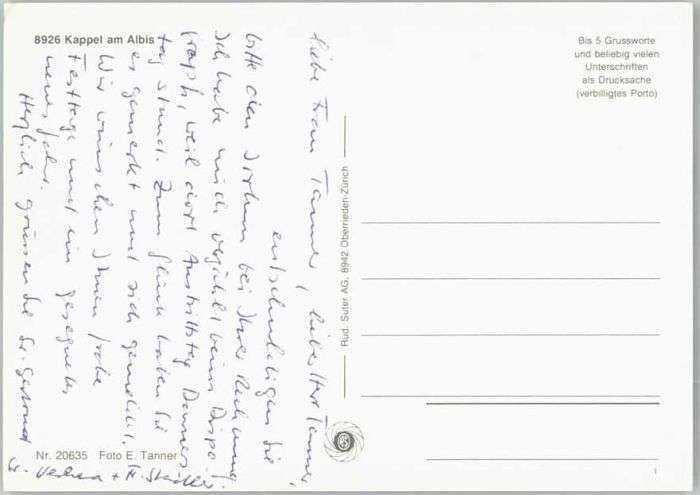 8926 Kappel am Albis
Bis 5 Grussworte
und beliebig vielen
Unterschriften
als Drucksache
(verbilligtes Porto)
Liebe Frau Tanner, lieber Herr Tanner,
entschuldigen Sie
bitte den Irrtum bei Ihrer Rechnung.
Ich habe mich verzählt beim Dispo-
graph, weil dort Austrittstag Donners-
tag stand. Zum Glück haben Sie
es gemerkt und sich gemeldet.
Wir wünschen Ihnen frohe
Festtage und ein gesegnetes
neues Jahr.
Herzlich grüssen Sie Sr.
Sr. Verena + H. Stadler.
Rud. Suter AG, 8942 Oberrieden-Zürich
Nr. 20635 Foto E. Tanner